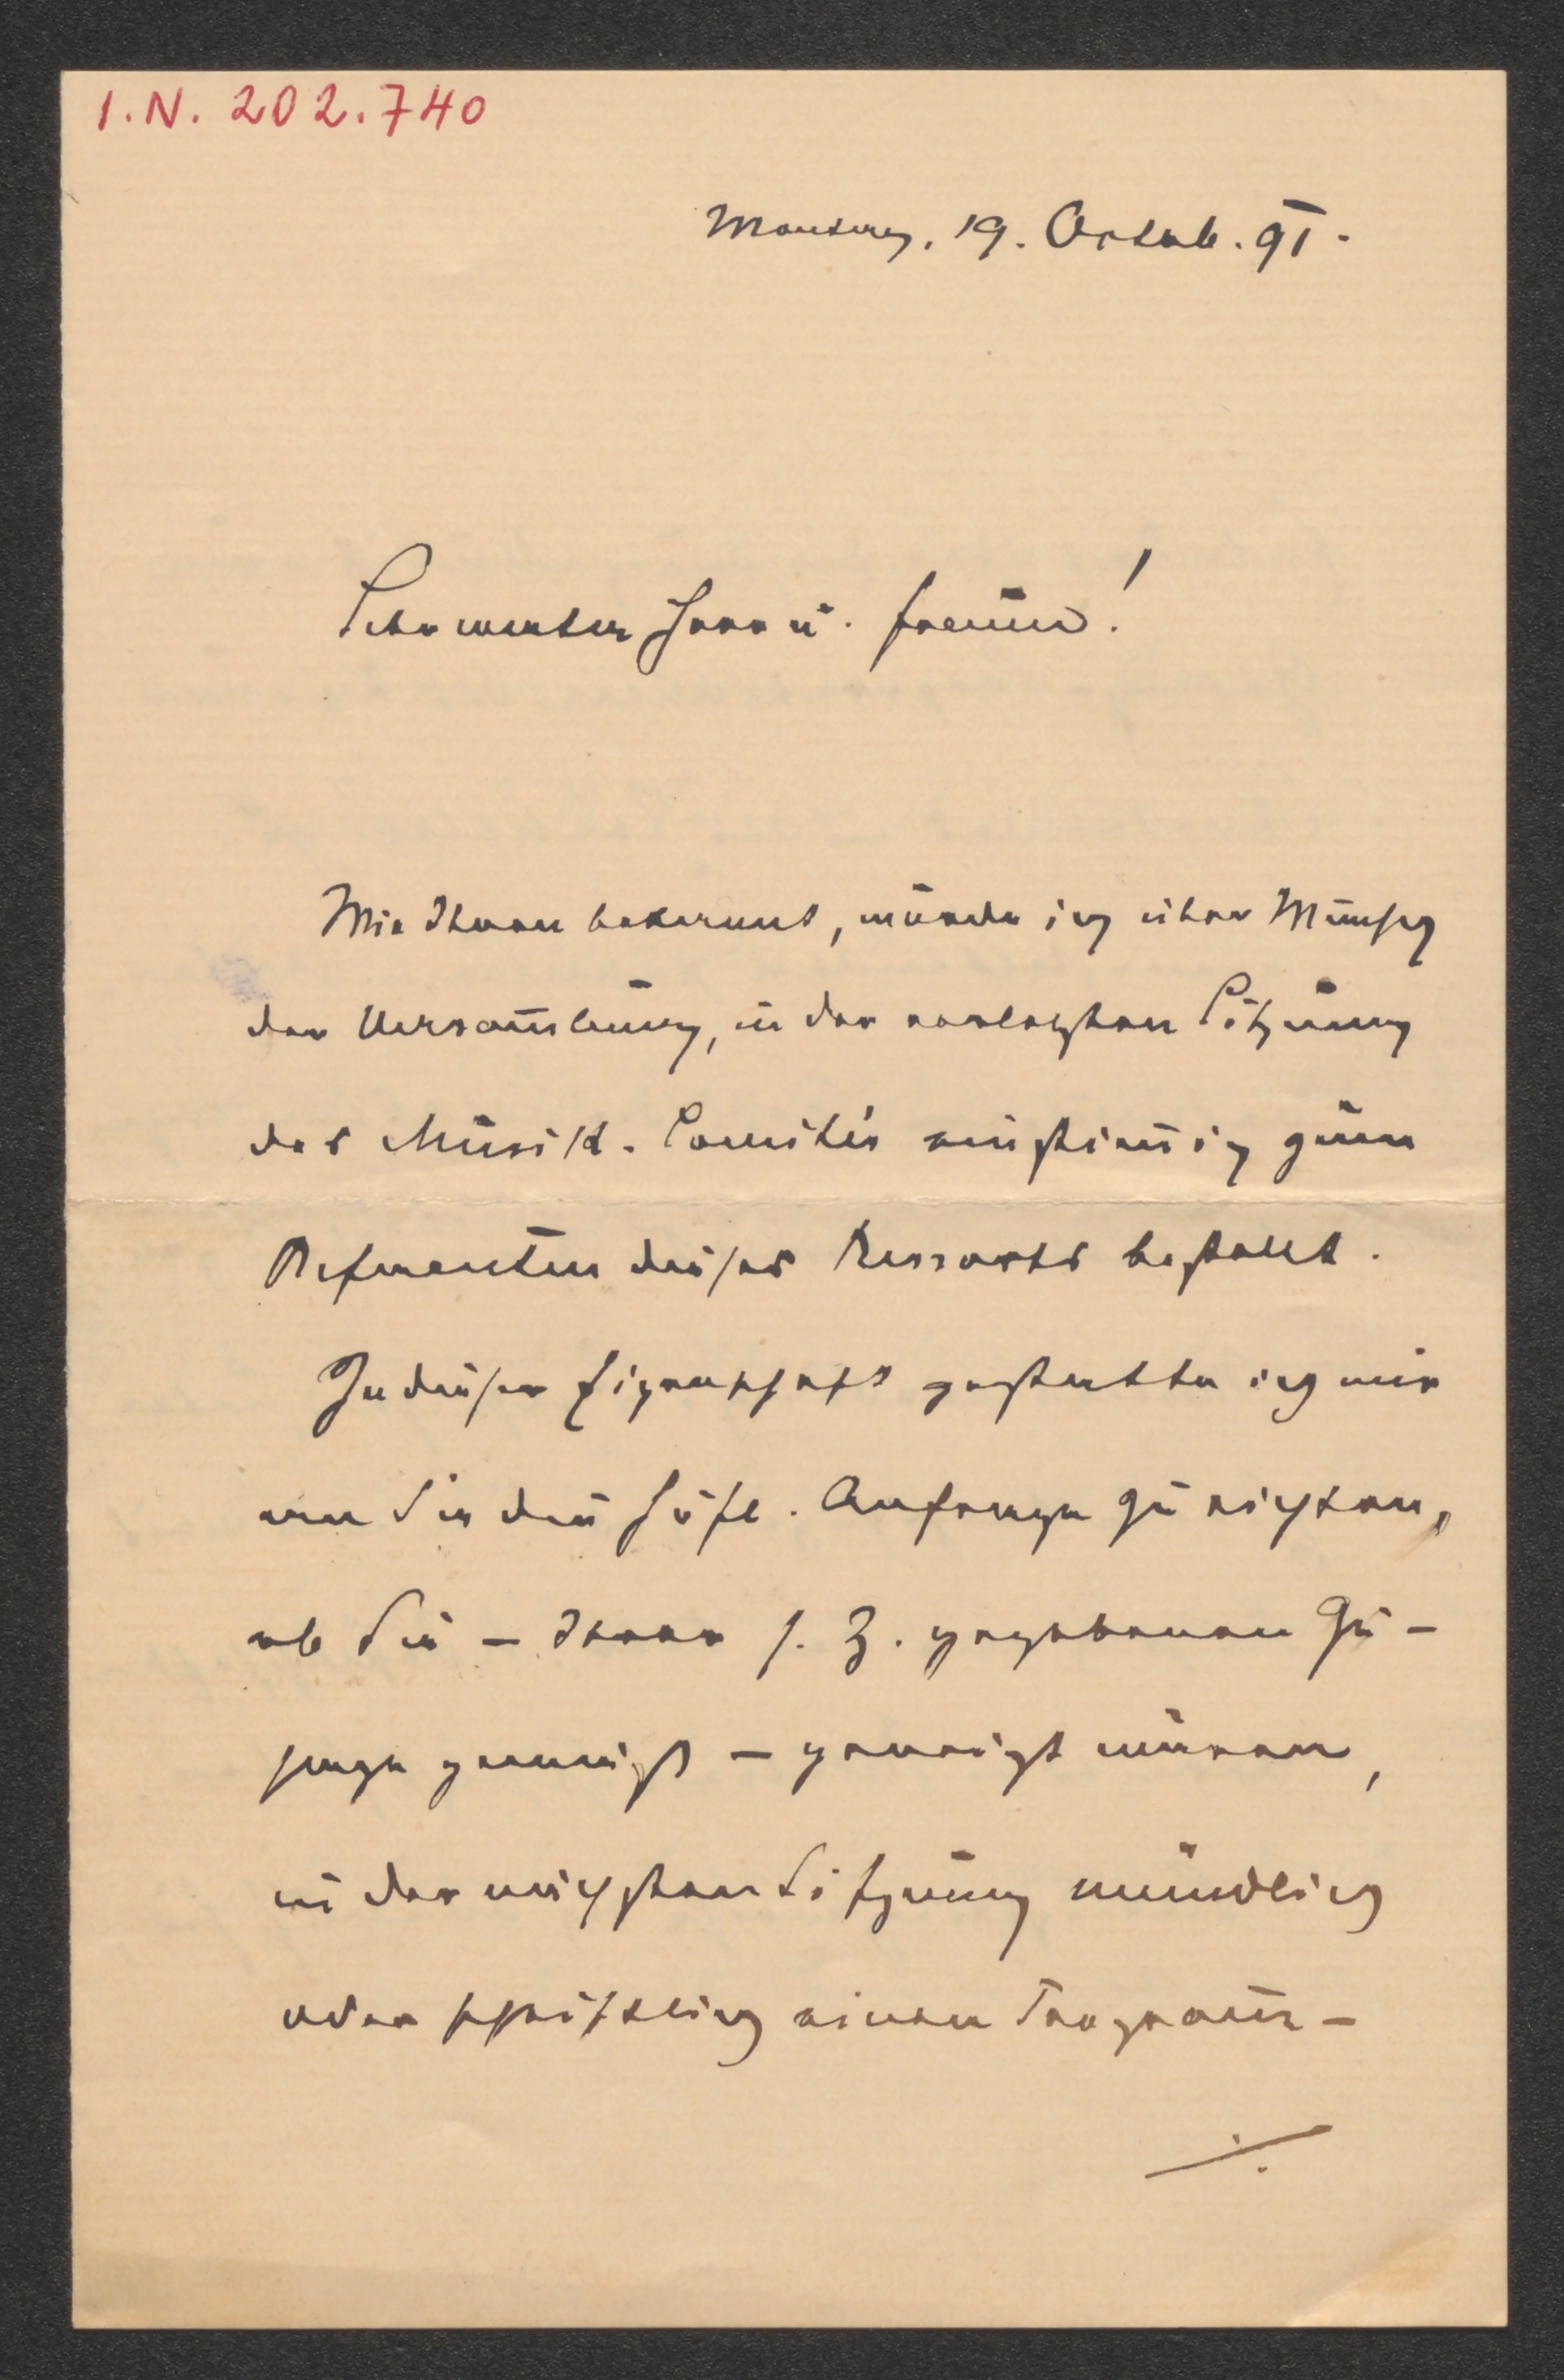 I.N. 202.740
Montag, 19. Octob. 91.
Sehr werter Herr u. Freund!
Wie Ihnen bekannt, wurde ich über Wunsch
der Versam̅lung, in der vorletzten Sitzung
des Musik-Comités einstim̅ig zum
Referenten dieses Ressorts bestellt.
In dieser Eigenschaft gestatte ich mir
an Sie die höfl. Anfrage zu richten,
ob Sie – Ihrer s. Z. gegebenen Zu-
sage gemäß – geneigt wären,
in der nächsten Sitzung mündlich
oder schriftlich einen Program̅-
./.